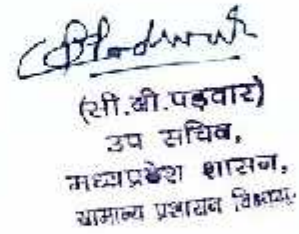 (सी.बी.पड़वार)
उप सचिव,
मध्यप्रदेश शासन,
सामान्य प्रशासन विभाग.